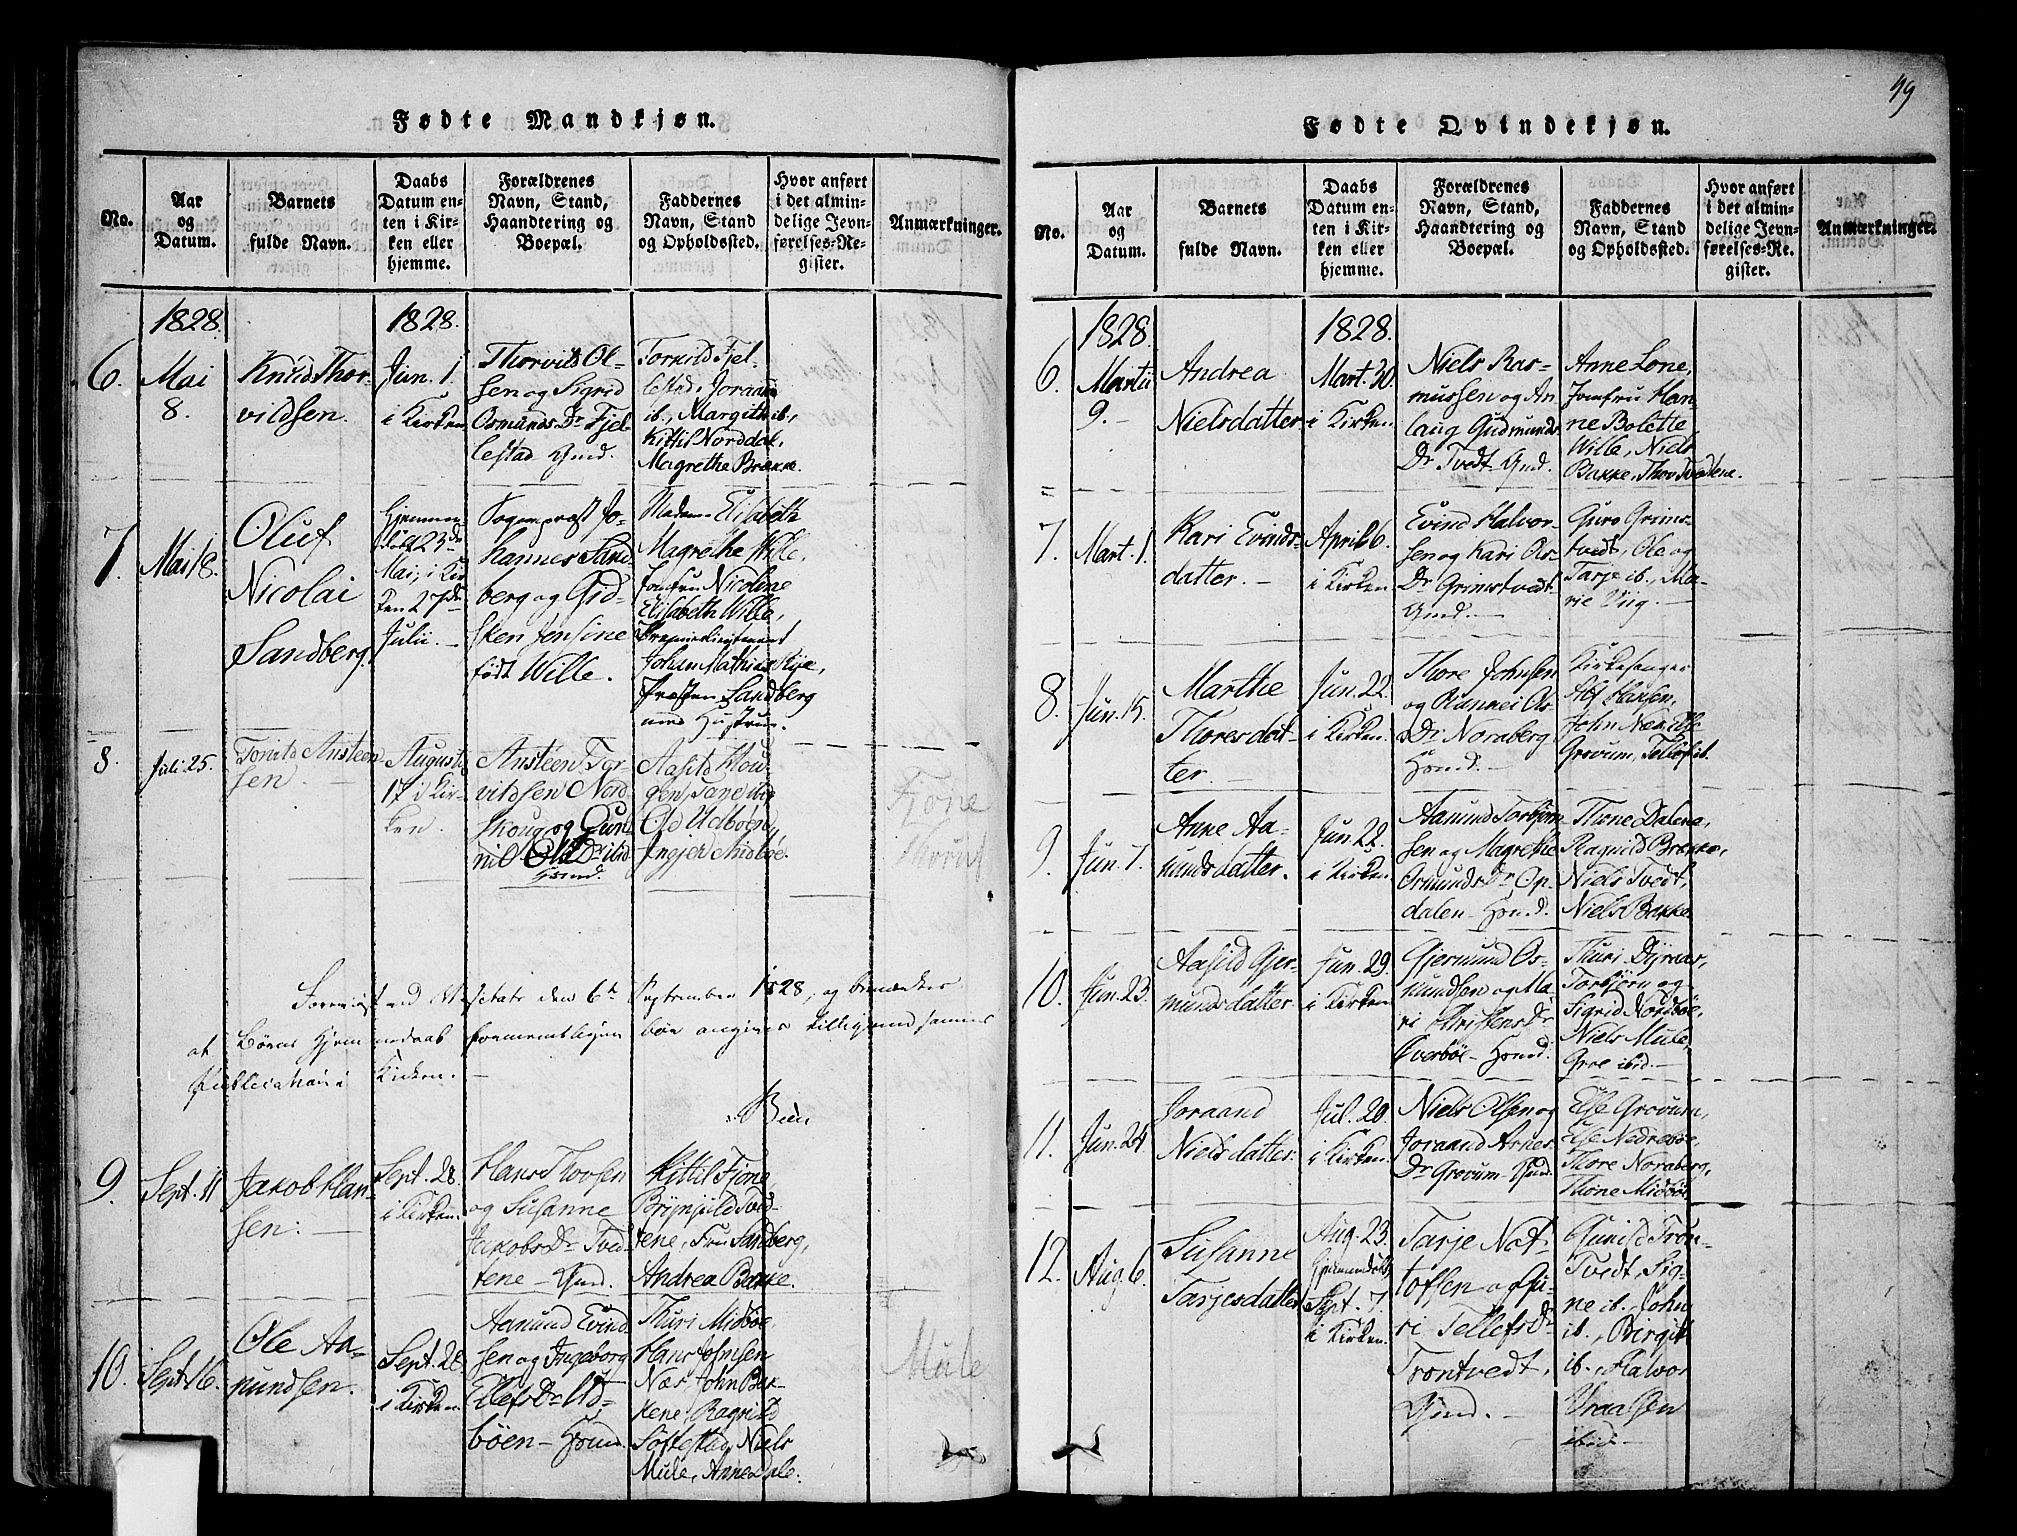 49
Fødte Mandkjøn.
No.
Aar
og
Datum.
Barnets
fulde Navn.
Daabs
Datum en-
ten i Kir-
ken eller
hjemme.
Forældrenes
Navn, Stand,
Haandtering og
Boepæl.
Faddernes
Navn, Stand
og Opholdssted.
Hvor anført
i det almin-
delige Jevn-
førelses-Re-
gister.
Anmærkninger.
1828.
1828.
6.
Mai
8.
Knud Thor-
vildsen.
Jun. 1.
i Kirken
Thorvild Ol-
sen og Sigrid
Osmunds Dr Fjel-
lestad Gmd.
Torkild Fjel-
lestad, Joraand
ib., Margith ib.,
Kittil Norddal,
Magrethe Brække.
7.
Mai 18.
Oluf
Nicolai
Sandberg.
Hjemme-
døbt 23de
Mai, i Kir-
ken 27de
Julii.
Sogneprest Jo-
hannes Sand-
berg og Gid-
sken Jensine
født Wille.
Madam Elisabeth
Magrethe Wille,
Jomfru Nicoline
Elisabeth Wille,
Premierlieutenant
Johan Mathias Rye,
Præsten Sandberg
med Hustru.
8.
Juli 25.
Torvild Ansteen-
sen.
August
17 i Kir-
ken.
Ansteen Tor-
vildsen Nord-
skoug og Gun-
nil Ols Dr ibid
Hsmd.
Aasild Hou-
gen, Tane ibid
Ole Udbøen,
Ingjer Midbøe.
Fjone
Thoruf
den 6te September 1828, og bemærkes
at Børns Hjemmedaab fornemmeligen bør angives tilligemed sammes
Publication i Kirken.
9.
Sept. 11
Jakob Han-
sen.
Sept. 28.
i Kirken.
Hans Thorsen
og Susanne
Jakobs Dr Tved-
tene - Gmd.
Kittil Fjone,
Brynjuld Tved-
tene, Fru Sandberg,
Andrea Bakke.
10.
Sept. 16.
Ole Aa-
nundsen.
Sept. 28
i Kirken
Aanund Evind-
sen og Ingeborg
Ellefs Dr Ud-
bøen - Hsmd.
Thuri Midbøe,
Hans Johnsen
Næs, John Bak-
kene, Ragnild
Søftestad, Niels
Mule, Anne Dale.
Mule
Fødte Qvindekjøn.
No.
Aar
og
Datum.
Barnets
fulde Navn.
Daabs
Datum en-
ten i Kir-
ken eller
hjemme.
Forældrenes
Navn, Stand,
Haandtering og
Boepæl.
Faddernes
Navn, Stand
og Opholdssted.
Hvor anført
i det almin-
delige Jevn-
førelses-Re-
gister.
Anmærkninger.
1828.
1828.
6.
Martii
9.
Andrea
Nielsdatter
Mart. 30.
i Kirken
Niels Ras-
mussen og An-
laug Gudmunds
Dr Tvedt Gmd.
Anne Lone,
Jomfru Han-
ne Bolette
Wille, Niels
Bakke, Thor Tvedtene.
7.
Mart. 1.
Kari Evinds-
datter.
April 6.
i Kirken
Evind Halvor-
sen og Kari Os-
Dr Grimstvedt
Gmd.
Guro Grims-
tvedt, Ole og
Tarje ib., Ma-
rie Viig.
8.
Jun. 15.
Marthe
Thoresdat-
ter.
Jun. 22.
i Kirken.
Thore Johnsen
og Rannei Os-
Dr Noraberg
Hsmd.
Kirkesanger
Alf Hansen,
John Næs, Else
Grovum, Tellef ib.
9.
Jun. 7.
Anne Aa-
nundsdatter.
Jun. 22.
i Kirken.
Aanund Torbjørn-
sen og Magrethe
Osmunds Dr Op-
dalen - Hsmd.
Thone Dalena,
Ragnild Brække,
Niels Tvedt,
Niels Bakke
10.
Jun. 23.
Aasild Gjer-
mundsdatter
Jun. 29.
i Kirken
Gjermund Os-
mundsen og Ma-
ri Christens Dr
Øverbøe - Hsmd.
Thuri Dyraas,
Torbjørn og
Sigrid Nordbøe,
Niels Mule,
Groe ibid.
11.
Jun. 24
Joraand
Nielsdatter.
Jul. 20.
i Kirken.
Niels Olsen og
Joraand Arnes
Dr Grovum Gmd.
Else Grovum,
Else Nedrebøe,
Thore Noraberg,
Thone Midbøe
12.
Aug. 6.
Susanne
Tarjesdatter
Aug. 23.
hjemmedøbt,
Sept. 7.
i Kirken.
Tarje Not-
tolfsen og Gu-
ri Tellefs Dr
Trontvedt,
Gmd.
Gunild Tron-
tvedt, Sig-
ne ib., John
ib., Birgit
ib., Halvor
Vraalsen
ibid.